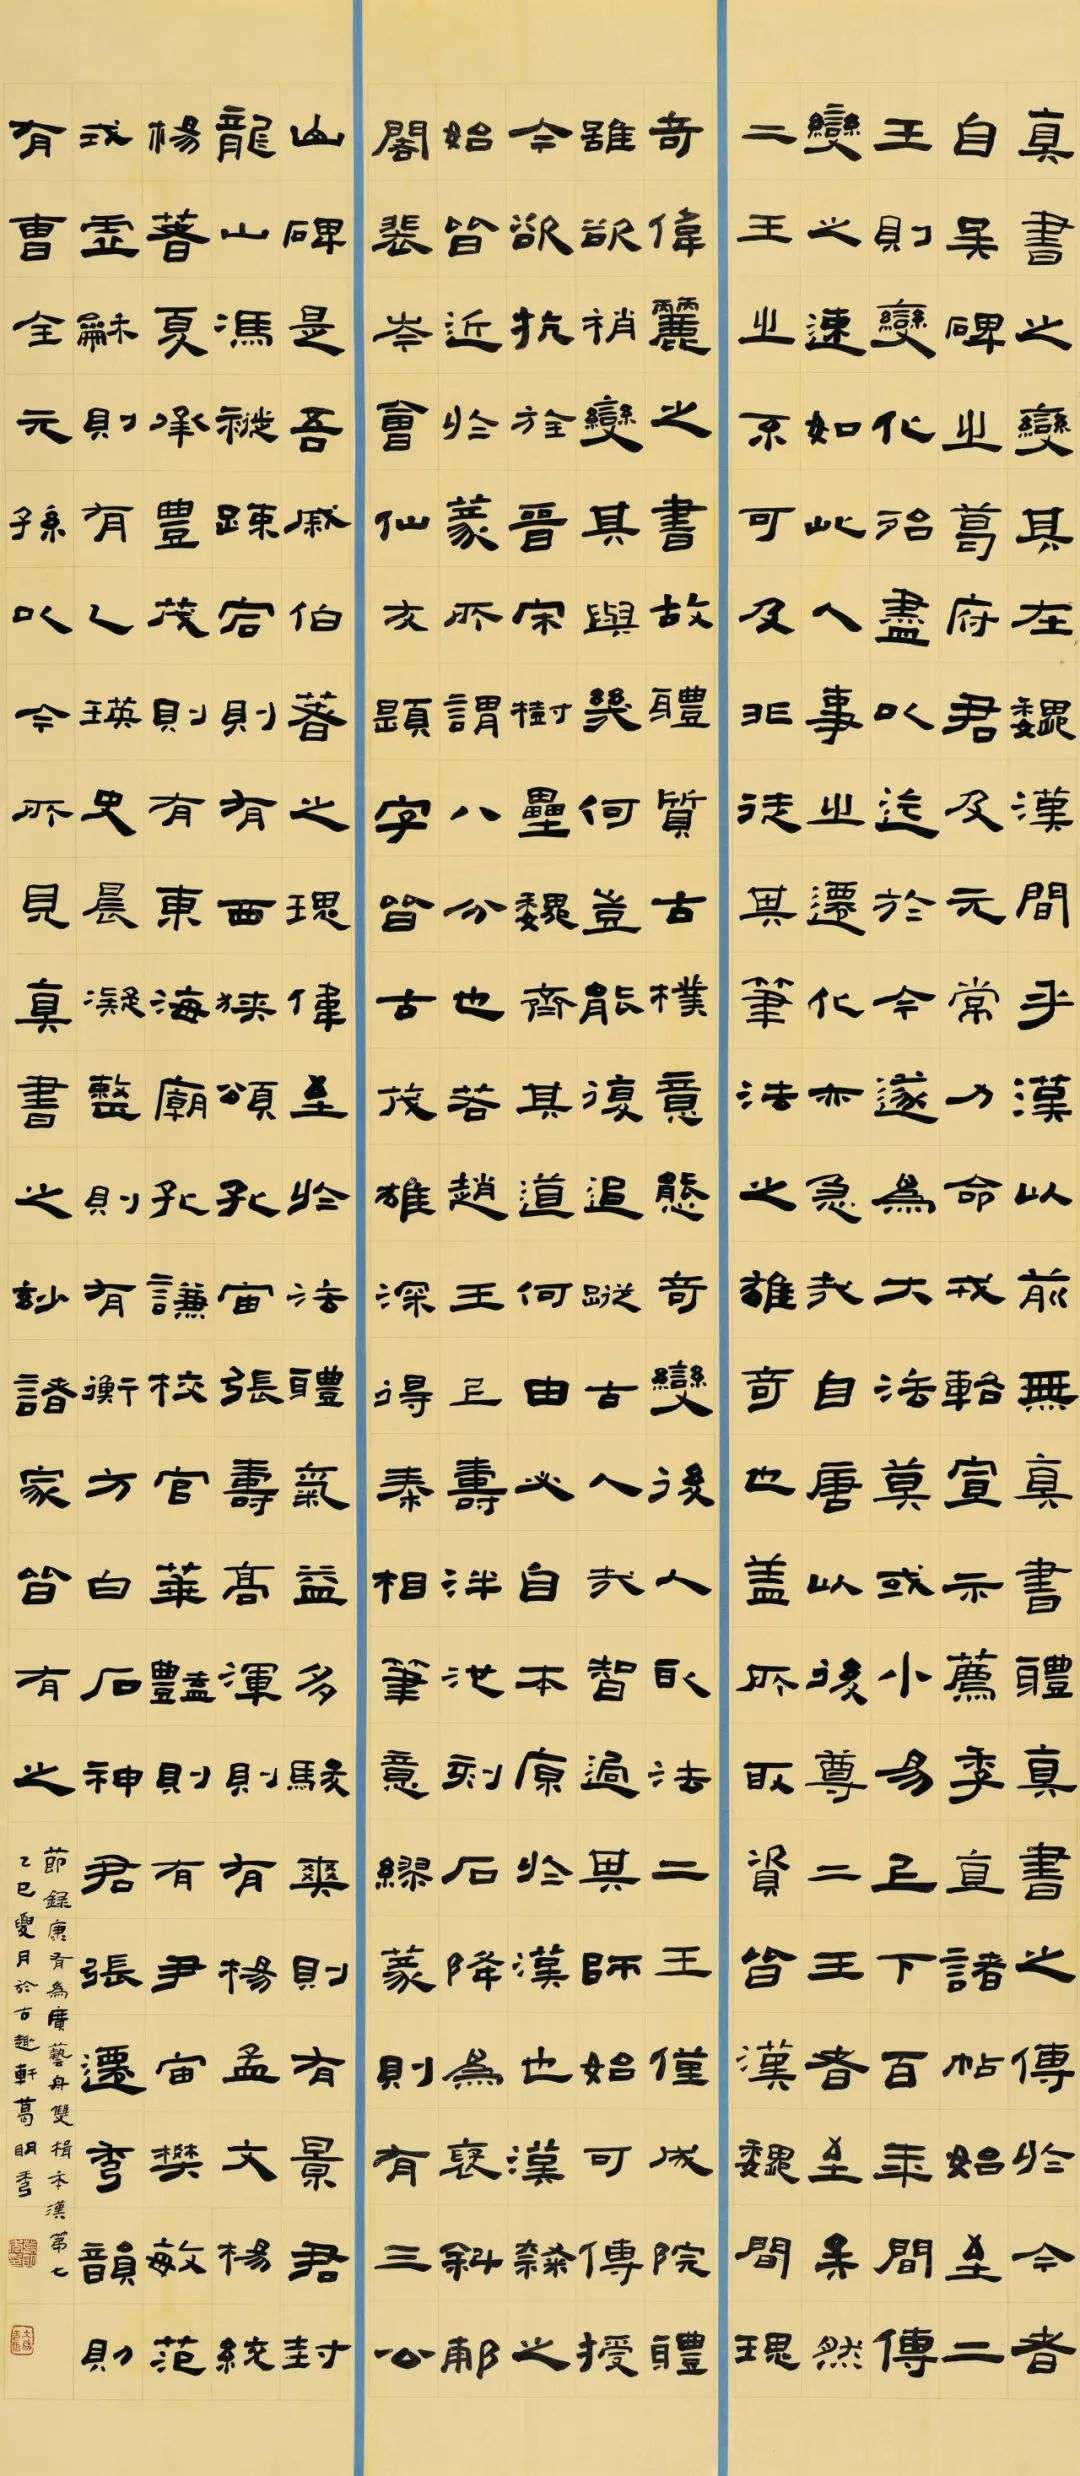 真書之變其在魏漢間乎漢以前無真書體真書之傳於今者
自吳碑之葛府君及元常力命戎輅宣示薦季直諸帖始至二
王則變化殆盡以迄於今遂為大法莫或小易上下百年間傳
變之速如此人事之遷化亦急哉自唐以後尊二王者至矣然
二王之不可及非徒其筆法之雄奇也蓋所取資皆漢魏間瑰
奇偉麗之書故體質古樸意態奇變後人取法二王僅成院體
雖欲稍變其與幾何豈能復追蹤古人哉智過其師始可傳授
今欲抗旌晉宋樹壘魏齊其道何由必自本原於漢也漢隸之
始皆近於篆所謂八分也若趙王上壽泮池刻石降為褒斜郙
閣裴岑會仙友題字皆古茂雄深得秦相筆意繆篆則有三公
山碑是吾戚伯著之瑰偉至於法體氣益多駿爽則有景君封
龍山馮緄疎宕則有西狹頌孔宙張壽高渾則有楊孟文楊統
楊著夏承豐茂則有東海廟孔謙校官華豔則有尹宙樊敏范
式虛龢則有乙瑛史晨凝整則有衡方白石神君張遷秀韻則
有曹全元孫以今所見真書之妙諸家皆有之
節錄康有為廣藝舟雙楫本漢第七
乙巳夏月於古趣軒葛明秀